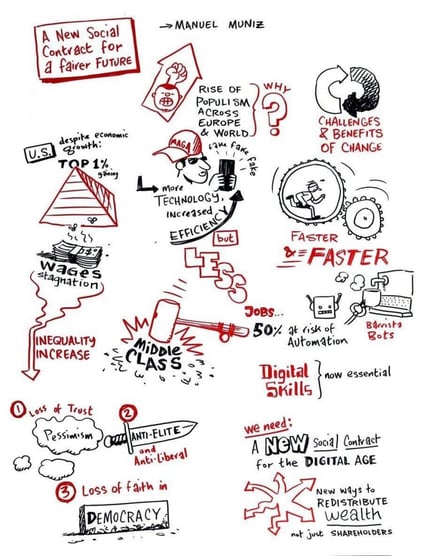 A New Social
Contract for
a fairer FUTURE
→ MANUEL MUNIZ
RISE OF
POPULISM
ACROSS
EUROPE
& WORLD
WHY
?
CHALLENGES
& BENEFITS
OF CHANGE
U.S.
despite economic
growth:
TOP 1%
gaining
WAGES
stagnation
INEQUALITY
INCREASE
MAGA
fake fake
fake
more
TECHNOLOGY,
increased
EFFICIENCY
but
LESS
JOBS...
FASTER
& FASTER
50% at risk of
Automation
Barrista
Bots
Middle
CLASS
Digital
Skills
now essential
1 Loss of Trust
Pessimism
2
ANTI-ELITE
and
Anti-Liberal
3 Loss of faith in
DEMOCRACY
we need:
A NEW Social Contract
for the DIGITAL AGE
New ways to
REDISTRIBUTE
Wealth
not just SHAREHOLDERS